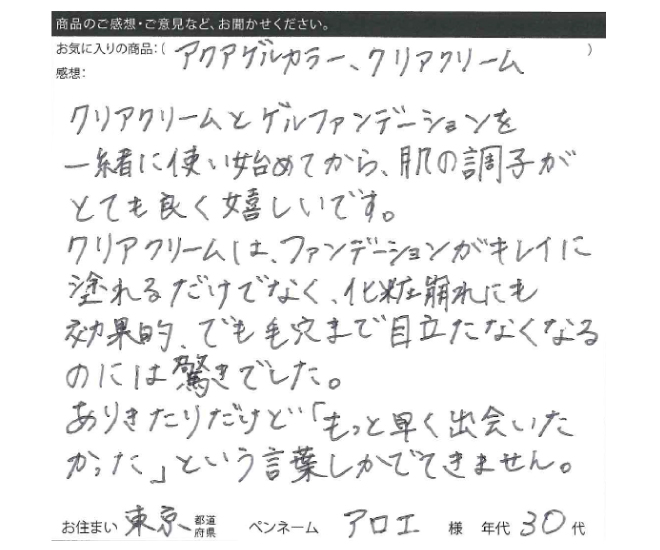 商品のご感想・ご意見など、お聞かせください。
お気に入りの商品:( アクアゲルカラー、クリアクリーム )
感想:
クリアクリームとゲルファンデーションを
一緒に使い始めてから、肌の調子が
とても良く嬉しいです。
クリアクリームは、ファンデーションがキレイに
塗れるだけでなく、化粧崩れにも
効果的、でも毛穴まで目立たなくなる
のには驚きでした。
ありきたりだけど「もっと早く出会いた
かった」という言葉しかでてきません。
お住まい 東京、都道府県 ペンネーム アロエ 様 年代 30 代